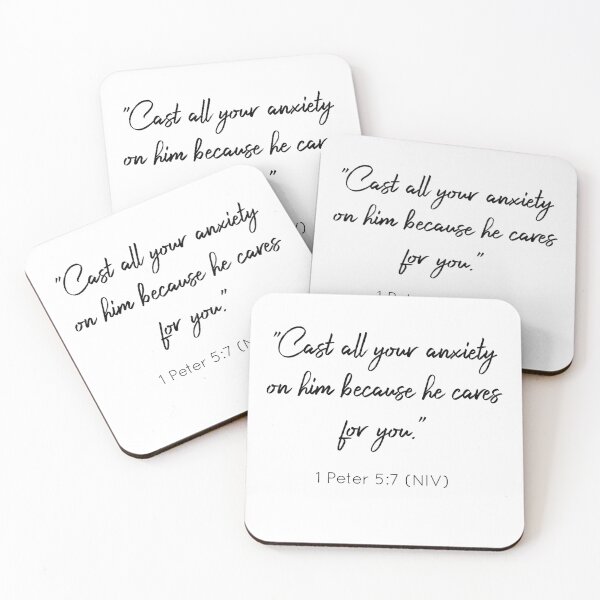 "Cast all your anxiety
on him because he
"Cast all your anxiety
on him because he cares
for you."
"Cast all your anxiety
on him because he cares
for you."
1 Peter 5:7 (N
"Cast all your anxiety
on him because he cares
for you."
1 Peter 5:7 (NIV)